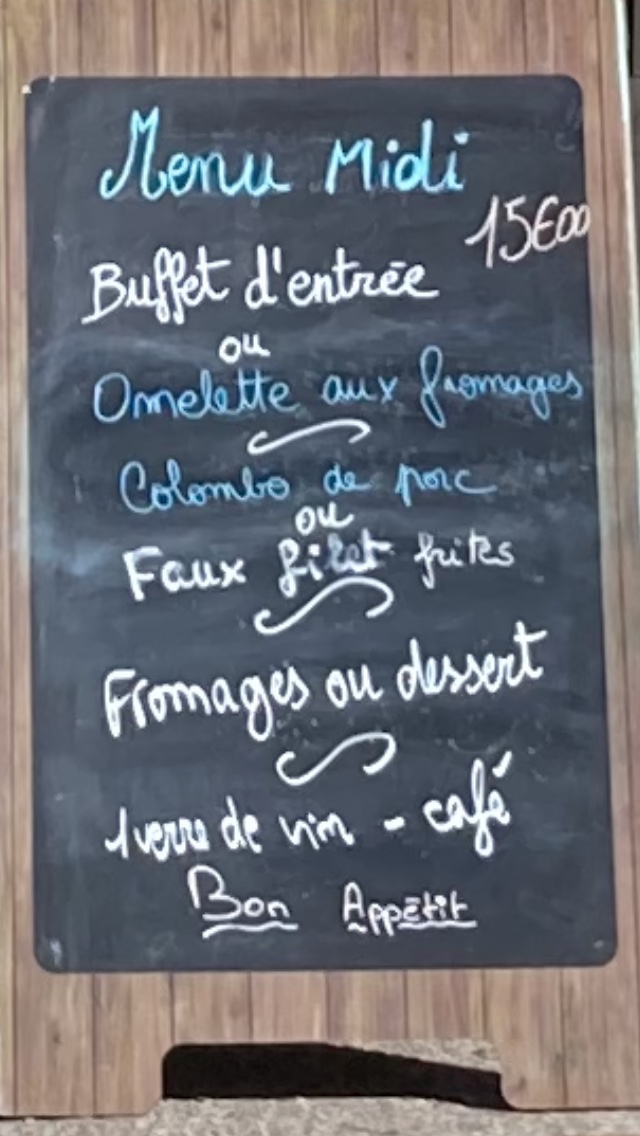 Menu Midi
15€00
Buffet d'entrée
ou
Omelette aux fromages
Colombo de porc
ou
Faux filet frites
Fromages ou dessert
1 verre de vin - café
Bon Appétit